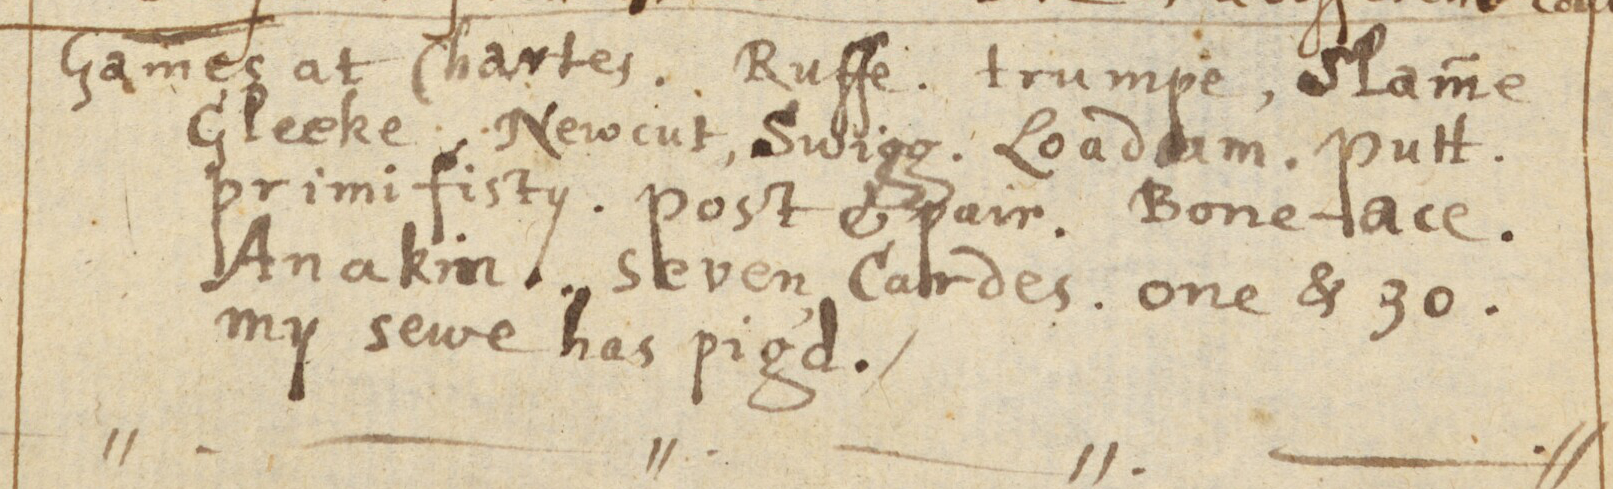 Games at Chartes. Ruffe. trumpe, Slam̄e
Gleeke. Newcut, Swigg. Loadam. putt.
primifisty. post & pair. Bone-ace.
Anakin.. seven Cardes. one & 30.
my sewe has pigd./